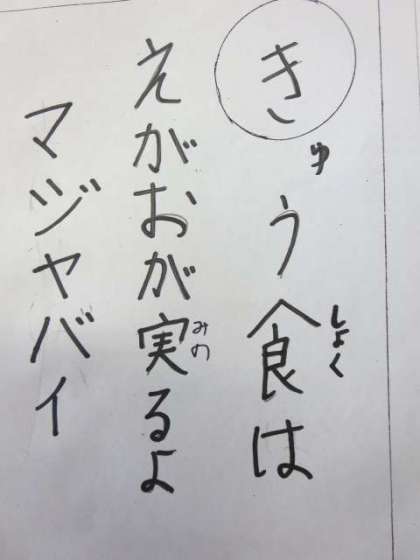 きゅう食は
しょく
えがおが実るよ
みの
マジヤバイ